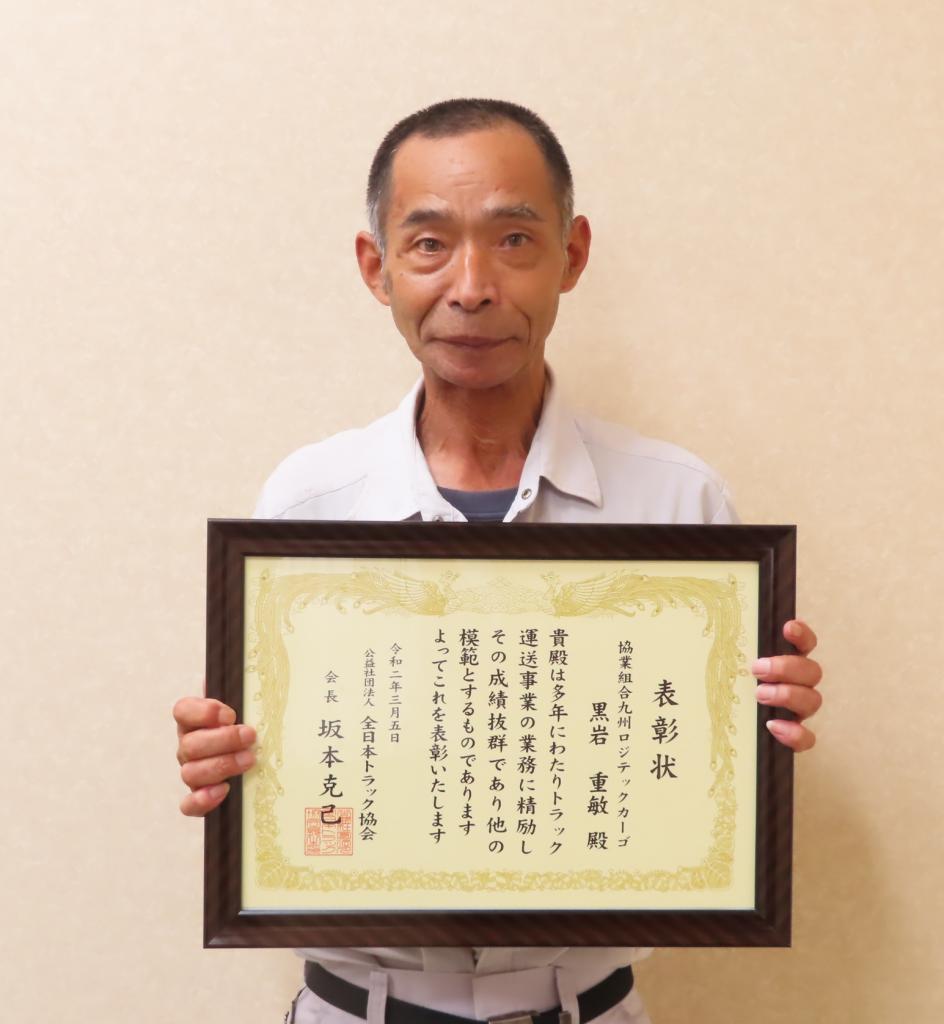 表彰状
協業組合九州ロジテックカーゴ
黒岩 重敏 殿
貴殿は多年にわたりトラック
運送事業の業務に精励し
その成績抜群であり他の
模範とするものであります
よってこれを表彰いたします
令和二年三月五日
公益社団法人 全日本トラック協会
会長 坂本克己